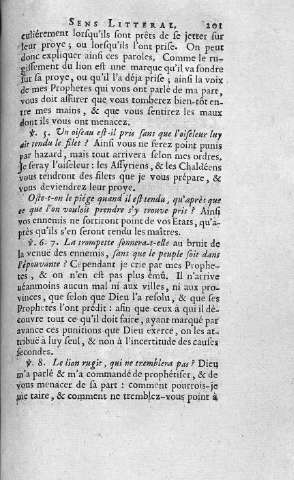 SENS LITTERAL. 201
culiérement lorsqu'ils sont prêts de se jetter sur
leur proye; ou lorsqu'ils l'ont prise. On peut
donc expliquer ainsi ces paroles. Comme le ru-
gissement du lion est une marque qu'il va fondre
sur sa proye, ou qu'il l'a déja prise; ainsi la voix
de mes Prophetes qui vous ont parlé de ma part,
vous doit assurer que vous tomberez bien-tôt en-
tre mes mains, & que vous sentirez les maux
dont ils vous ont menacez.
℣. 5. Un oiseau est-il pris sans que l'oiseleur luy
ait tendu le filet? Ainsi vous ne serez point punis
par hazard, mais tout arrivera selon mes ordres.
Je seray l'oiseleur: les Assyriens, & les Chaldéens
vous tendront des filets que je vous prépare, &
vous deviendrez leur proye.
Oste-t-on le piége quand il est tendu, qu'aprés que
ce que l'on vouloit prendre s'y trouve pris? Ainsi
vos ennemis ne sortiront point de vos Etats, qu'a-
prés qu'ils s'en seront rendu les maîtres.
℣. 6. 7. La trompette sonnera-t-elle au bruit de
la venue des ennemis, sans que le peuple soit dans
l'épouvante? Cependant je crie par mes Prophe-
tes, & on n'en est pas plus émû. Il n'arrive
néanmoins aucun mal ni aux villes, ni aux pro-
vinces, que selon que Dieu l'a resolu, & que ses
Prophetes l'ont prédit: afin que ceux à qui il dé-
couvre tout ce qu'il doit faire, ayant marqué par
avance ces punitions que Dieu exerce, on les at-
tribuë à luy seul, & non à l'incertitude des causes
secondes.
℣. 8. Le lion rugit, qui ne tremblera pas? Dieu
m'a parlé & m'a commandé de prophétiser, & de
vous menacer de sa part: comment pourrois-je
me taire, & comment ne tremblez-vous point à